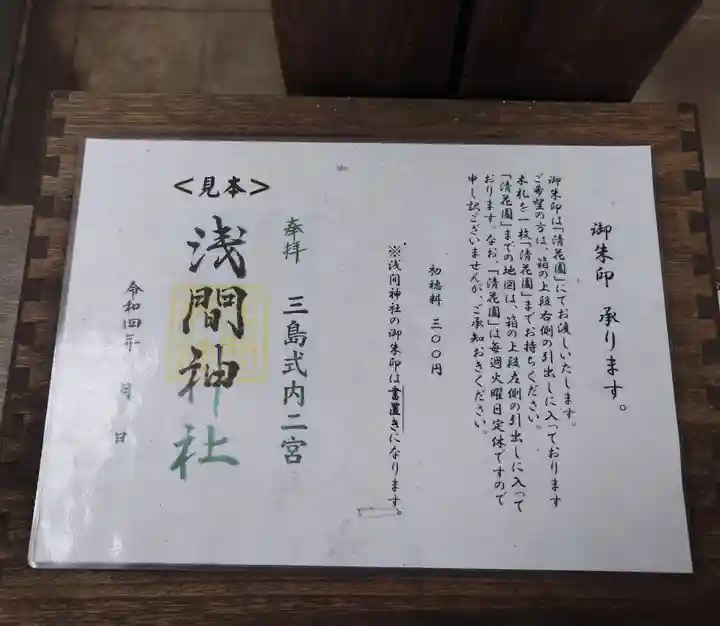 御朱印 承ります。
御朱印は「清花園」にてお渡しいたします。
ご希望の方は、箱の上段右側の引出しに入っております
木札を一枚「清花園」までお持ちください。
「清花園」までの地図は、箱の上段左側の引出しに入って
おります。なお、「清花園」は毎週火曜日定休ですので
申し訳ございませんが、ご承知おきください。
初穂料 三〇〇円
※浅间神社の御朱印は書置きになります。
<見本>
奉拝 三島式内二宮
浅間神社
令和四年 月 日